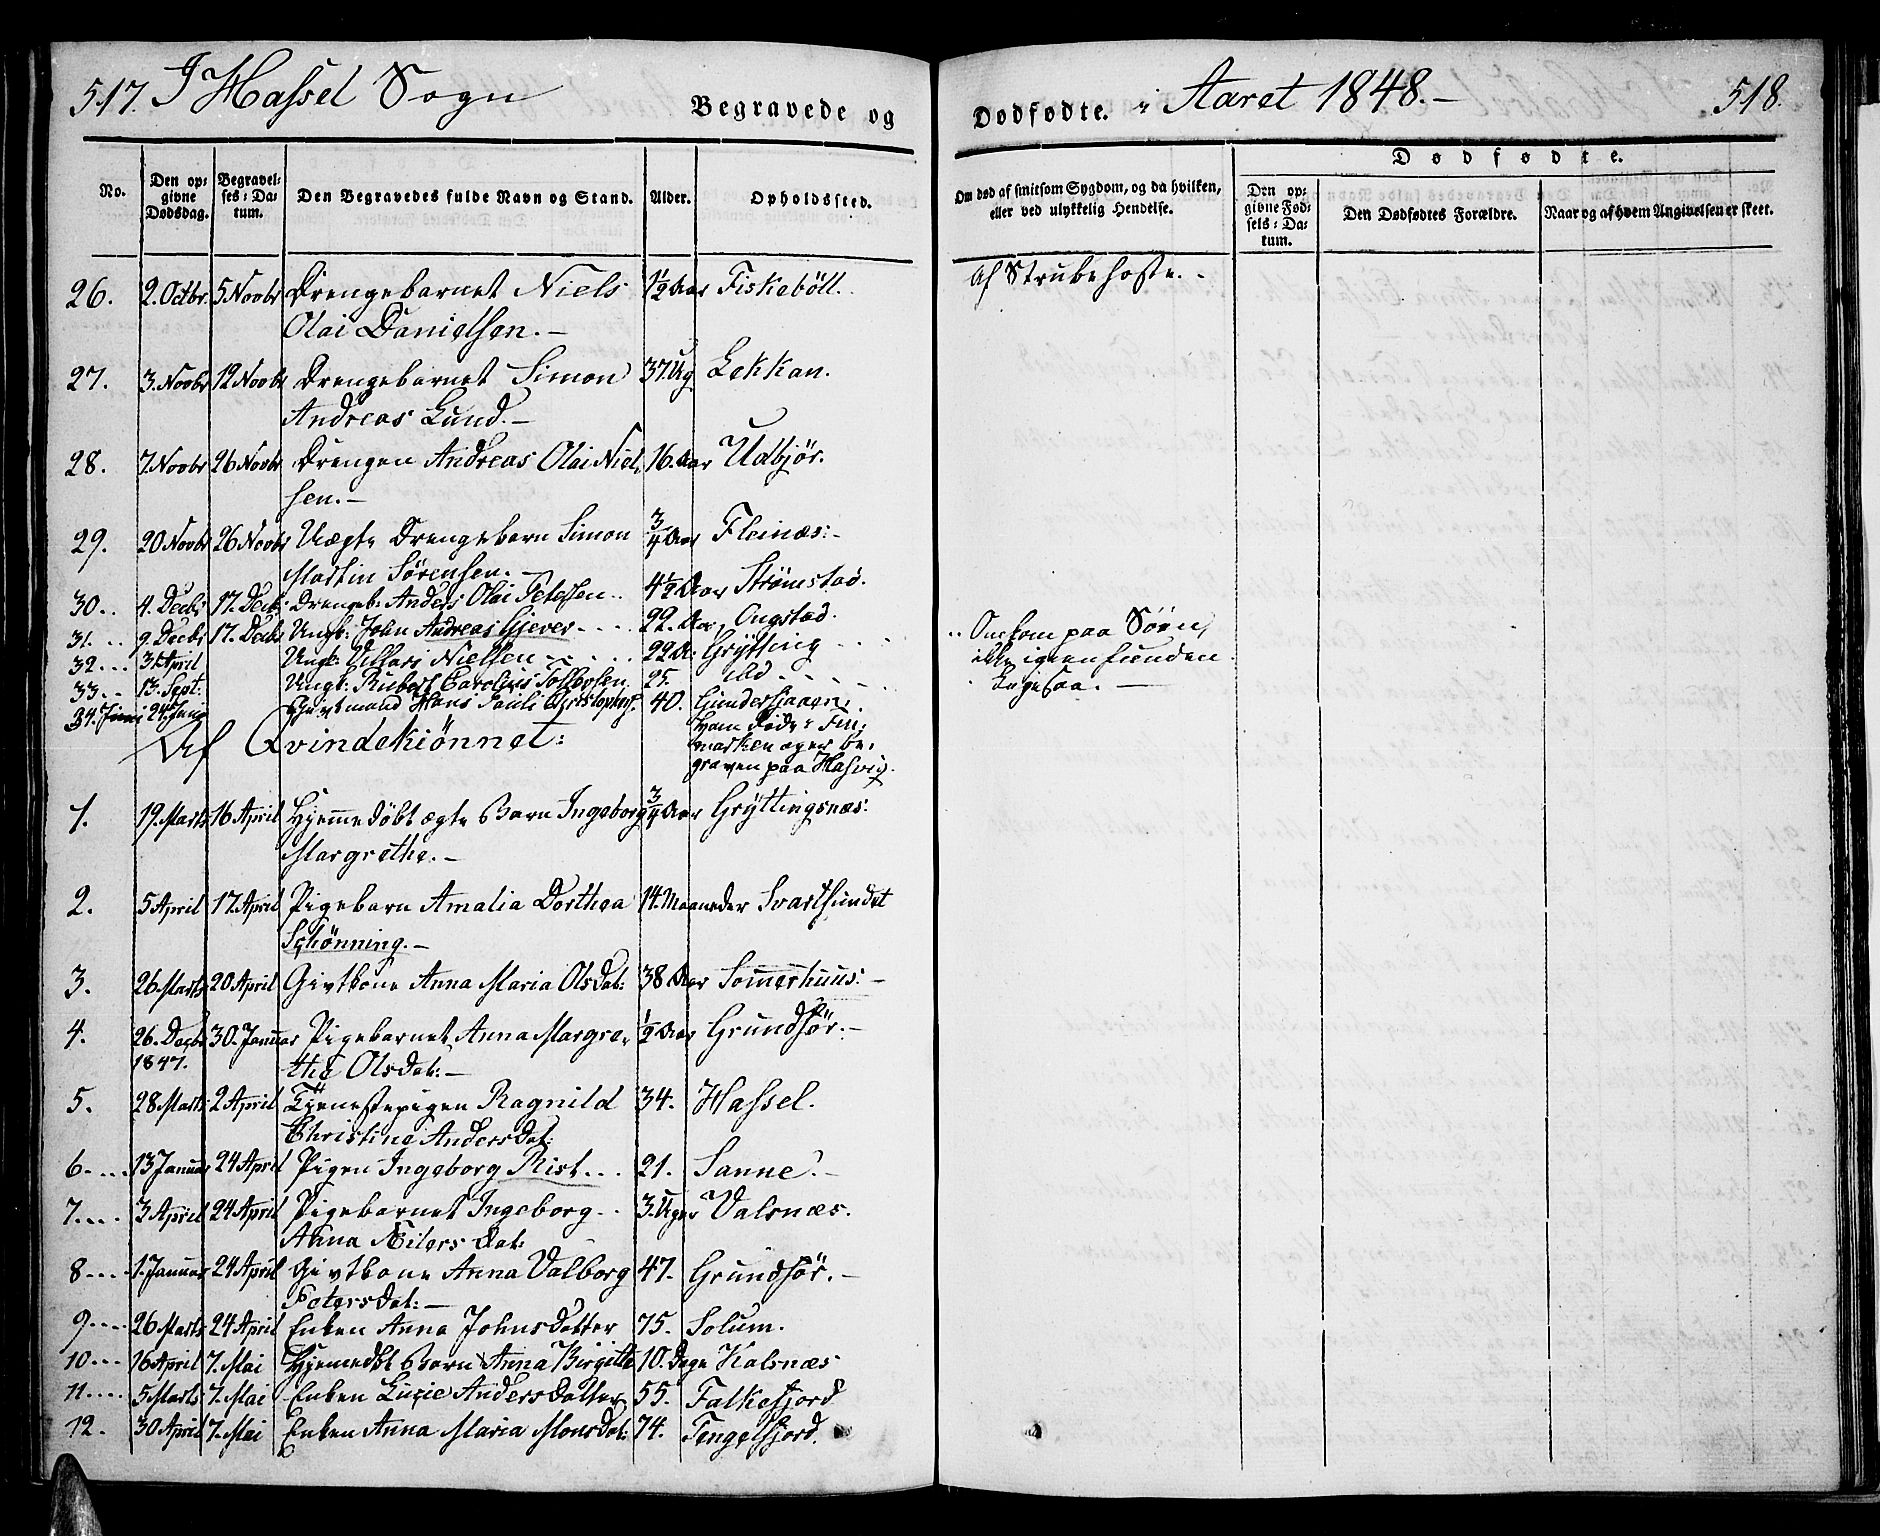 517. I Hassel Sogn
Begravede og
Dødfødte. i Aaret 1848.—
518.
No.
Den op-
givne
Dødsdag.
Begravel-
ses-Da-
tum.
Den Begravedes fulde Navn og Stand.
Alder.
Opholdssted.
Om død af smitsom Sygdom, og da hvilken,
eller ved ulykkelig Hendelse.
Dødfødte.
Den op-
givne Fød-
sels-Da-
tum.
Den Dødfødtes Forældre.
Naar og af hvem Angivelsen er skeet.
26. 2. Octbr. 5 Novbr Drengebarnet Niels 1/2 Aar Fiskebøll. Af Strubehoste.-
Olai Danielsen.—
27. 3. Novbr 12 Novbr Drengebarnet Simon 37. Ug Lekkan.
Andreas Lund.—
28. 7. Novbr 26 Novbr Drengen Andreas Olai Niel- 16. Aar Udbjör.
sen.—
29. 20 Novbr 26 Novbr Uægte Drengebarn Simon 3/4 Aar Fleinæs:-
Martin Sörensen.—
30.. 4. Decbr 17. Decbr Drengeb: Anders Olai Petersen.. 4 1/2 Aar Strömstad.
31... 9. Decbr 17. Decbr Ungk: John Andreas Gjever--- 22. Aar Ongstad. .. Omkom paa Söen,
32... 3. April Ungk: Villari Nielsen----- 22 A: Grytting ikke igjenfunden
33... 13. Sept: Ungk: Rubert Carolius Tollevsen. 25. ibd----- Ligesaa.—
34. Juni 24. Juni Givtmand Hans Pauli Christophers. 40. Gunders
ham døde i Fin-
marken oger be-
graven paa Hasvig.
Af Qvindekiønnet:
1. 19. Marts 16 April Hjemmedöbt ægte Barn Ingeborg 3/4 Aar Gryttingsnæs:
Margrethe.—
2. 5 April 17. April Pigebarn Amalia Dorthea 14. Maaneder Svartsundet
Schönning.—
3. 26 Marts 20 April Givtkone Anna Maria Olsdat: 38 Aar Sommerhuus:—
4. 26. Decbr 30. Januar Pigebarnet Anna Margre- 1/2 Aar Grundför.—
1847. the Olsdat:—
5. 28 Marts 2 April Tjenestepigen Ragnild 34. Hassel.
Christine Andersdat:
6-... 13 Januar 24 April Pigen Ingeborg Rist... 21. Sanne.—
7.... 3 April 24 April Pigebarnet Ingeborg.. 3. Uger Valsnæs.
Anna Eilers Dat:
8---- 1. Januar 24 April Givtkone Anna Valborg 47. Grundför.—
Petersdat:—
9---- 26 Marts 24 April Enken Anna Johnsdatter 75. Solum.
10... 16 April 7. Mai Hjemedbt Barn Anna Birgitte 10. Dage Kalsnæs
11.... 5 Marts 7. Mai Enken Lucie Andersdatter 55. Falkefjord
12. 30 April 7. Mai Enken Anna Maria Monsdat: 74. Tengelfjord.